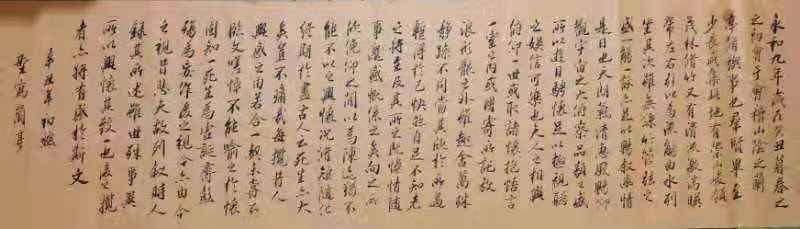 永和九年歲在癸丑暮春之
初會于會稽山陰之蘭
亭脩禊事也群賢畢至
少長咸集此地有崇山峻領
茂林脩竹又有清流激湍映
帶左右引以為流觴曲水列
坐其次雖無絲竹管弦之
盛一觴一詠亦足以暢叙幽情
是日也天朗氣清惠風和暢仰
觀宇宙之大俯察品類之盛
所以遊目騁懷足以極視聽
之娛信可樂也夫人之相與
俯仰一世或取諸懷抱悟言
一室之內或因寄所託放
浪形骸之外雖趣舍萬殊
靜躁不同當其欣於所遇
暫得於己快然自足不知老
之將至及其所之既惓情隨
事遷感慨係之矣向之所
欣俛仰之間以為陳迹猶不
能不以之興懷況脩短隨化
終期於盡古人云死生亦大
矣豈不痛哉每攬昔人
興感之由若合一契未嘗不
臨文嗟悼不能喻之於懷
固知一死生為虛誕齊彭
殤為妄作後之視今亦由今
之視昔悲夫故列叙時人
錄其所述雖世殊事異
所以興懷其致一也後之攬
者亦將有感於斯文
辛丑年初
寫蘭亭